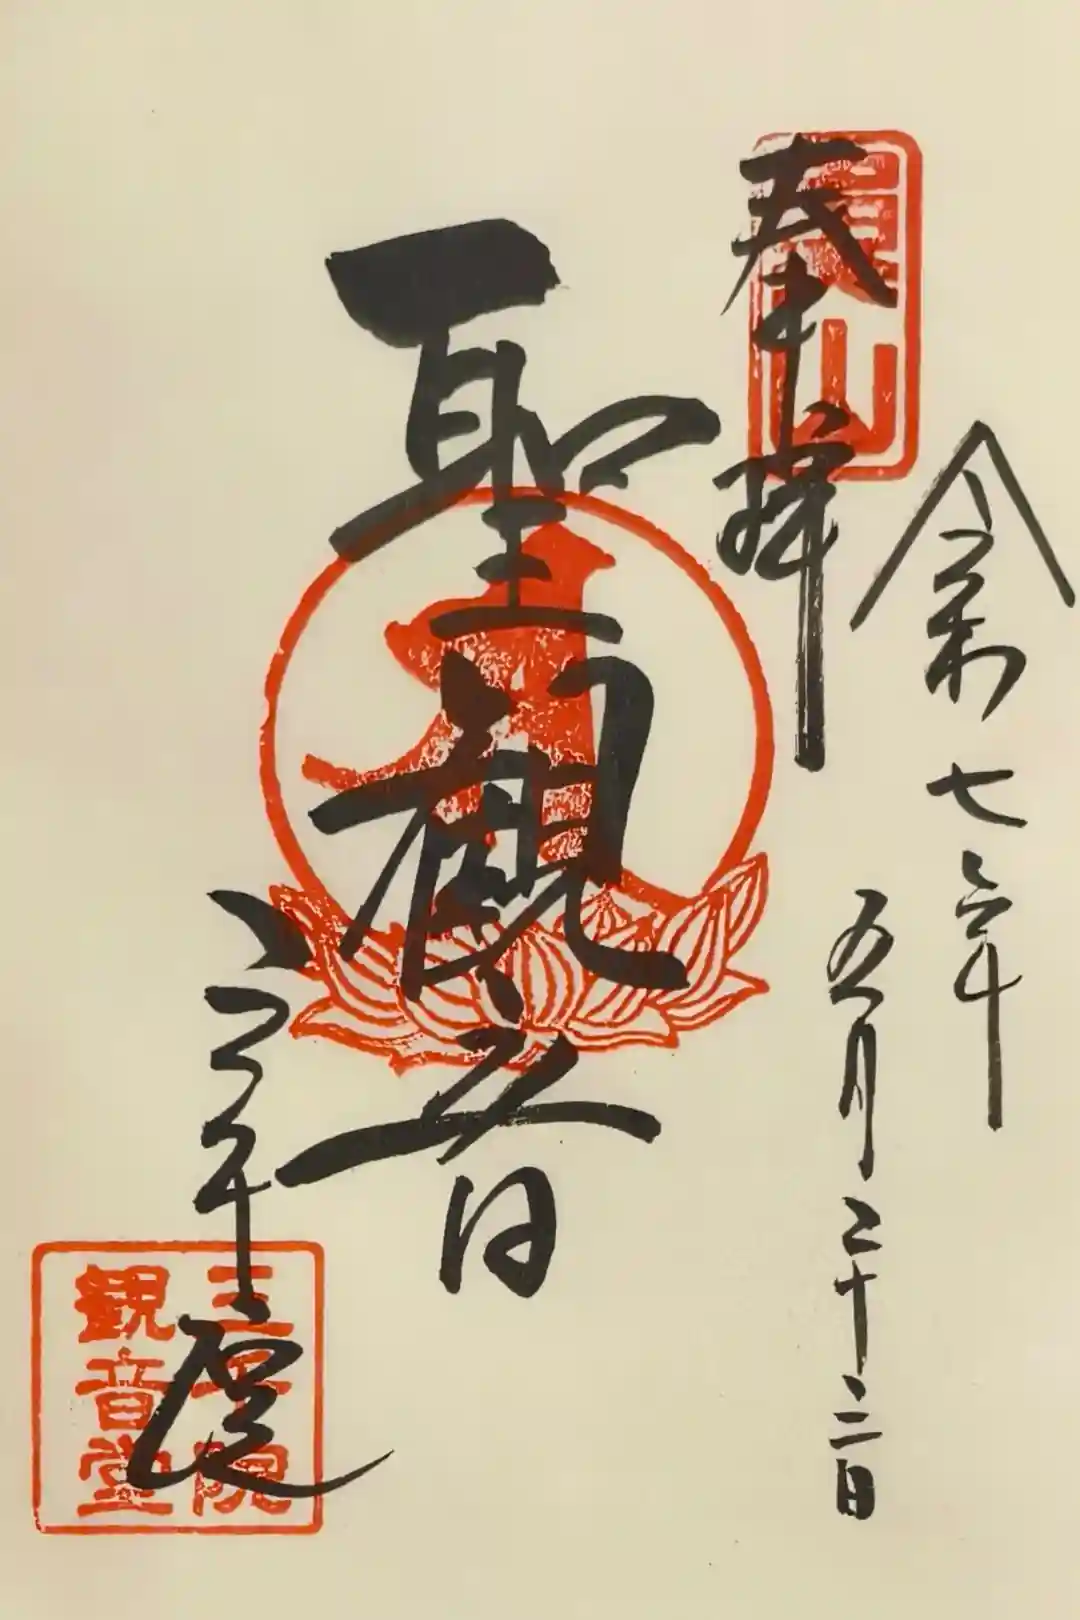 令和七年
五月二十三日
奉拝
魚山
聖観音
三千院
三千院
観音堂